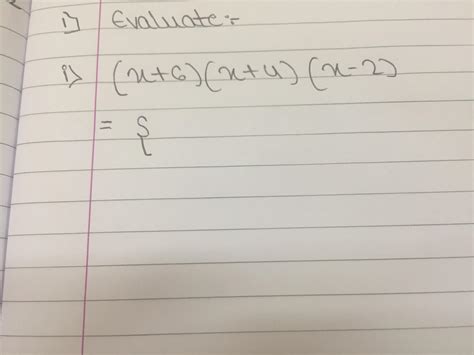 i) Evaluate:-
i) (x+6)(x+4)(x-2)
= S